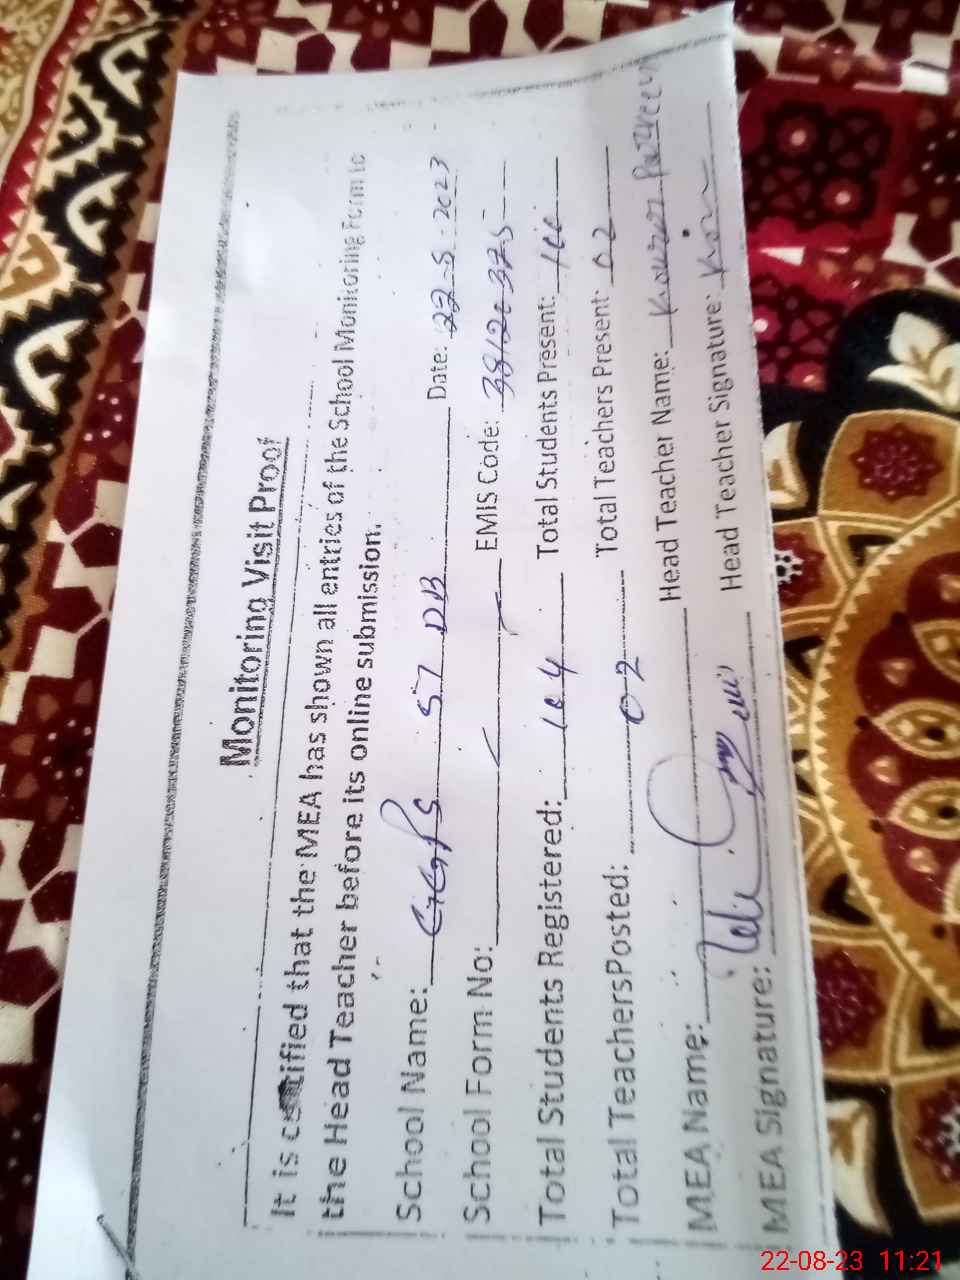 Monitoring Visit Proof
It is certified that the MEA has shown all entries of the School Monitoring Form to
the Head Teacher before its online submission.
School Name: GGPS 57 DB Date: 22-8-2023
School Form No: EMIS Code: 38120375
Total Students Registered: 104 Total Students Present: 100
Total Teachers Posted: 02 Total Teachers Present: 02
MEA Name: Head Teacher Name: Kousar Parveen
MEA Signature: Head Teacher Signature:
22-08-23 11:21